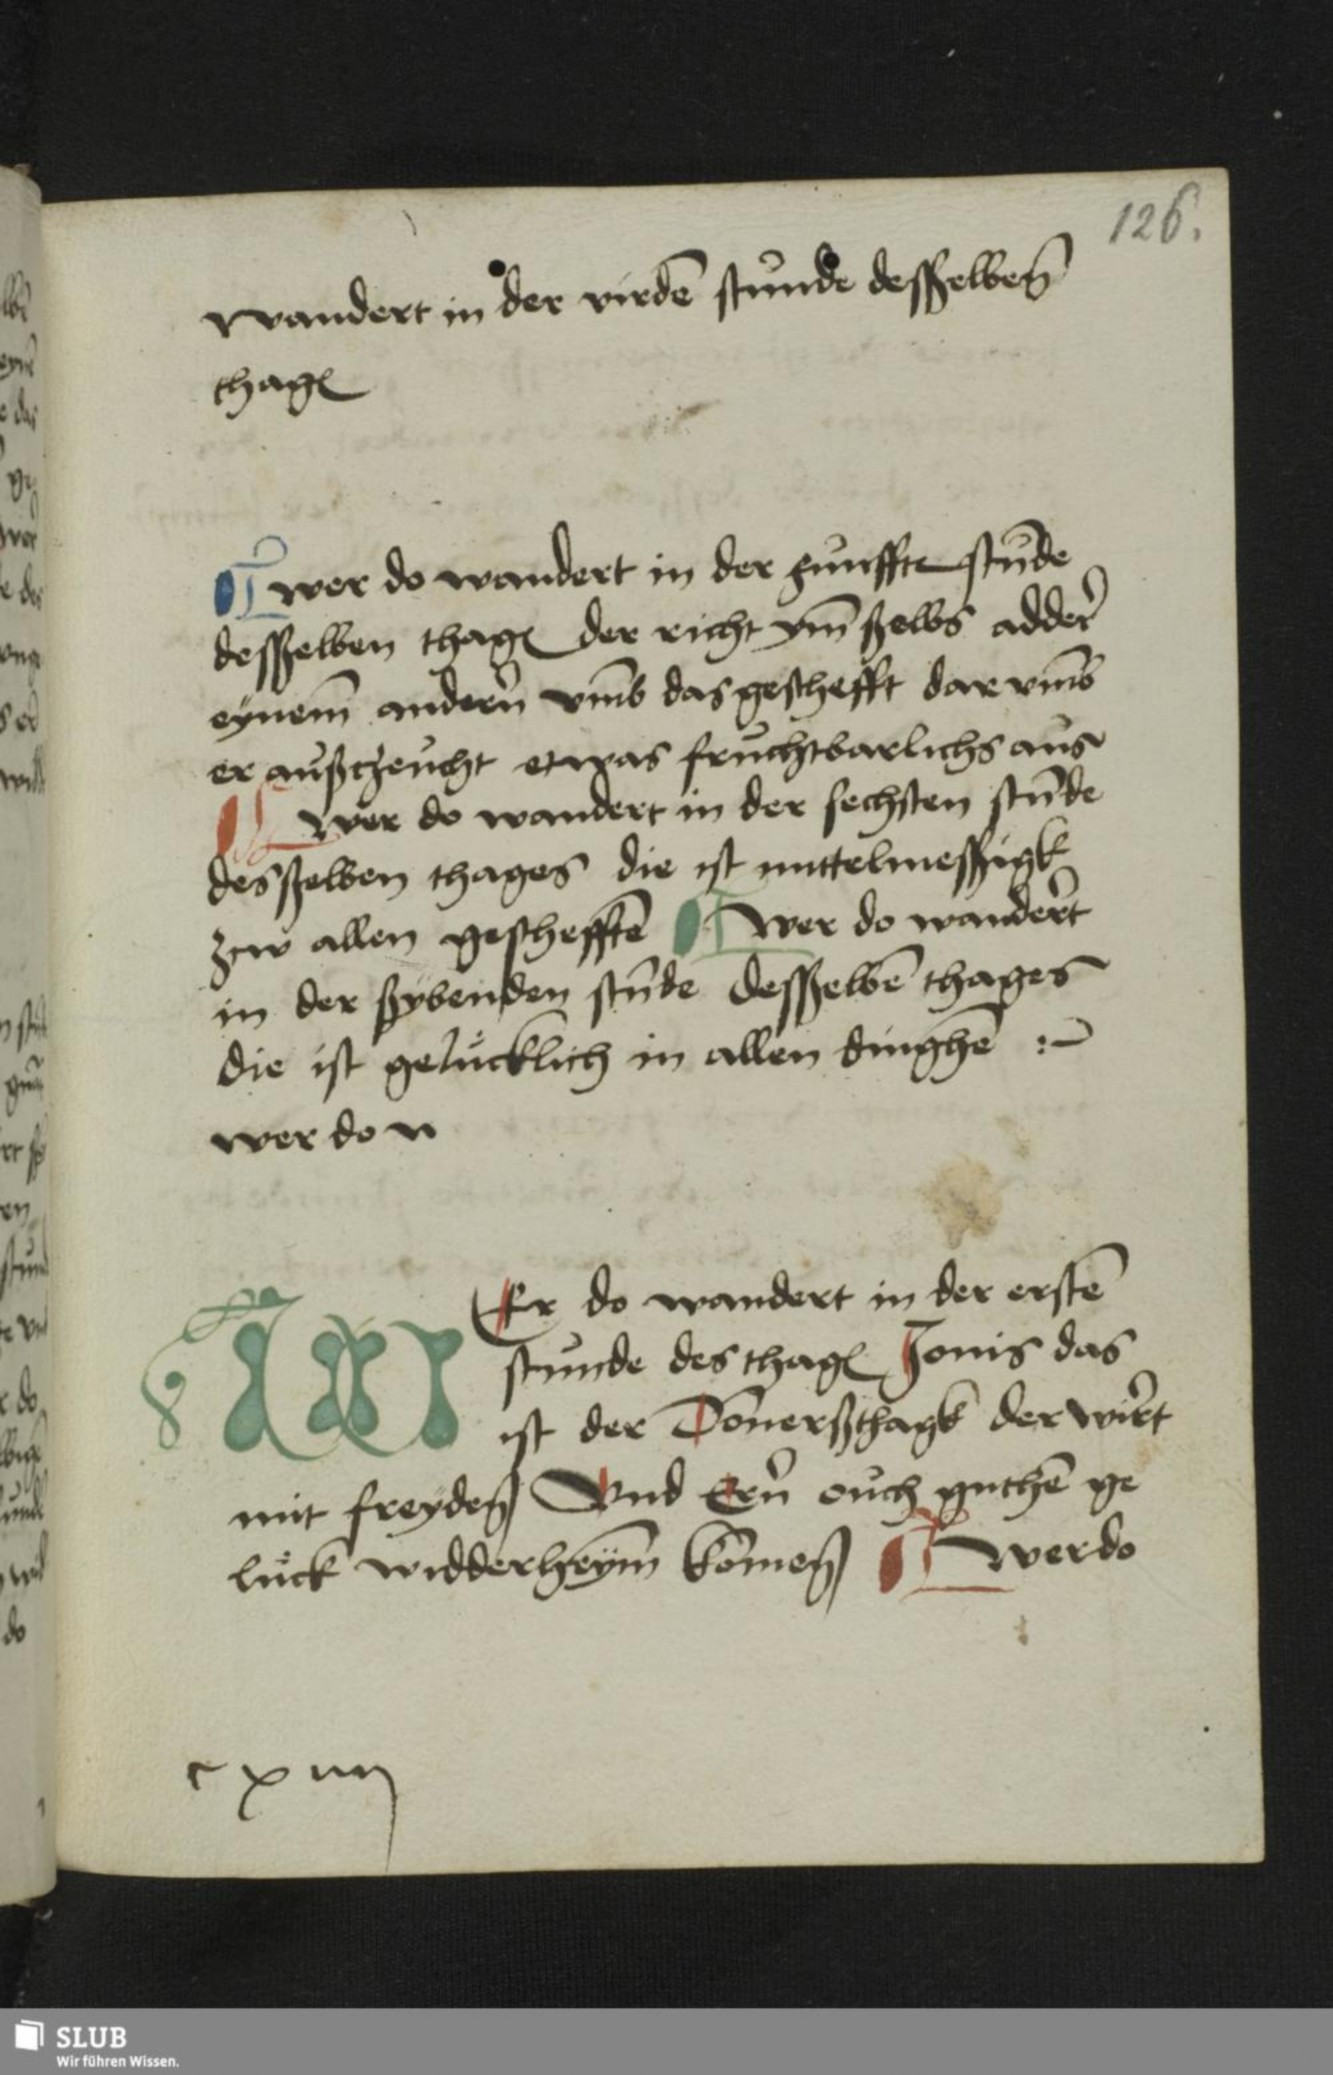 126.
wandert in der virdē stunde desselbeñ
thagꝭ
¶ wer do wandert in der funffte stūde
desßelben thagꝭ der richt ym̄ ßelbs adder
eynem̄ andern vm̄b das geschefft dar vm̄b
er außczeucht etwas fruchtbarlichs aus
¶ wer do wandert in der sechsten stūde
desßelben thages die ist mittelmessigk
zcw allen gescheffte᷑n ¶ wer do wandert
in der ßybenden stūde desßelbē thages
die ist gelücklich in allen dinghē :~
wer do w
WEr do wandert in der erstē
stunde des thagꝭ Jouis das
ist der Dōnerßthagk der wirt
mit freydeñ Vnd Ern ouch guthē ge
lück widderheym̄ kōmeñ ¶ wer do
cxiiij
SLUB
Wir führen Wissen.